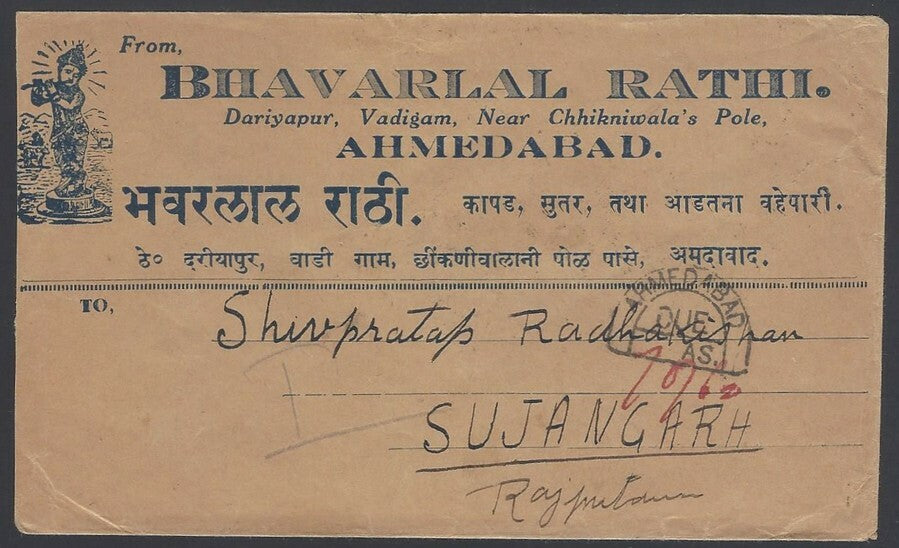 From,
BHAVARLAL RATHI.
Dariyapur, Vadigam, Near Chhikniwala's Pole,
AHMEDABAD.
भवरलाल राठी. कापड, सुतर, तथा आडतना वहेपारी.
ठे० दरीयापुर, वाडी गाम, छींकणीवालानी पोळ पासे, अमदावाद.
TO,
Shivpratap Radhakishan
AHMEDABAD
DUE
AS.
SUJANGARH
Rajputana